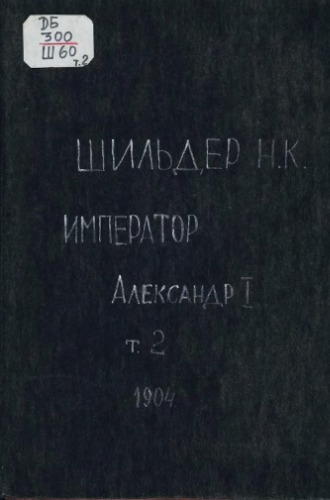 ДБ
300
Ш60
т.2
ШИЛЬДЕР Н.К.
ИМПЕРАТОР
АЛЕКСАНДР I
т. 2
1904